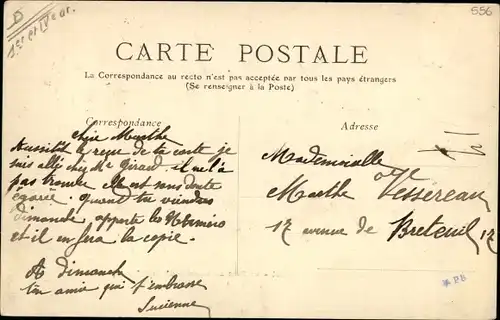 556
D
1er et IVe ar.
CARTE POSTALE
La Correspondance au recto n'est pas acceptée par tous les pays étrangers
(Se renseigner à la Poste)
Correspondance
Adresse
Chère Marthe
Aussitôt reçue de ta carte je
suis allé chez Mr Girard. il ne l'a
pas trouvée elle est sans doute
égarée. Quand tu viendras
dimanche, apporte les
et il en fera la copie.
A dimanche
ton amie qui t'embrasse
Lucienne
Mademoiselle
Marthe Vessereau
17 avenue de Breteuil, 17